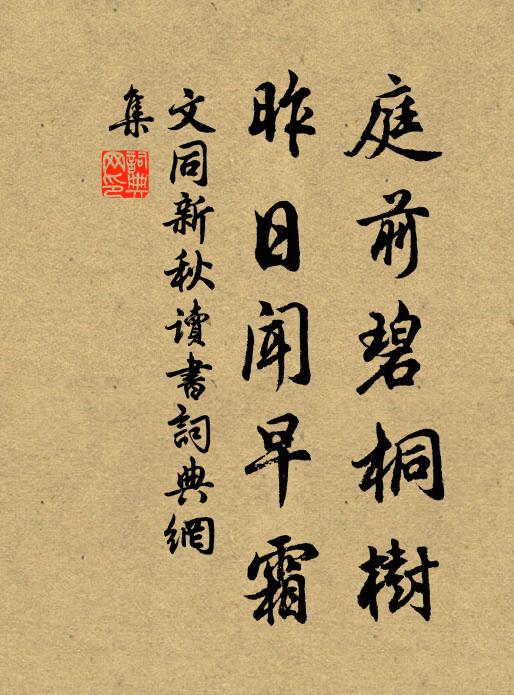 庭前碧桐樹
昨日聞早霜
文同新秋讀書詞典網
集
詞典
网印